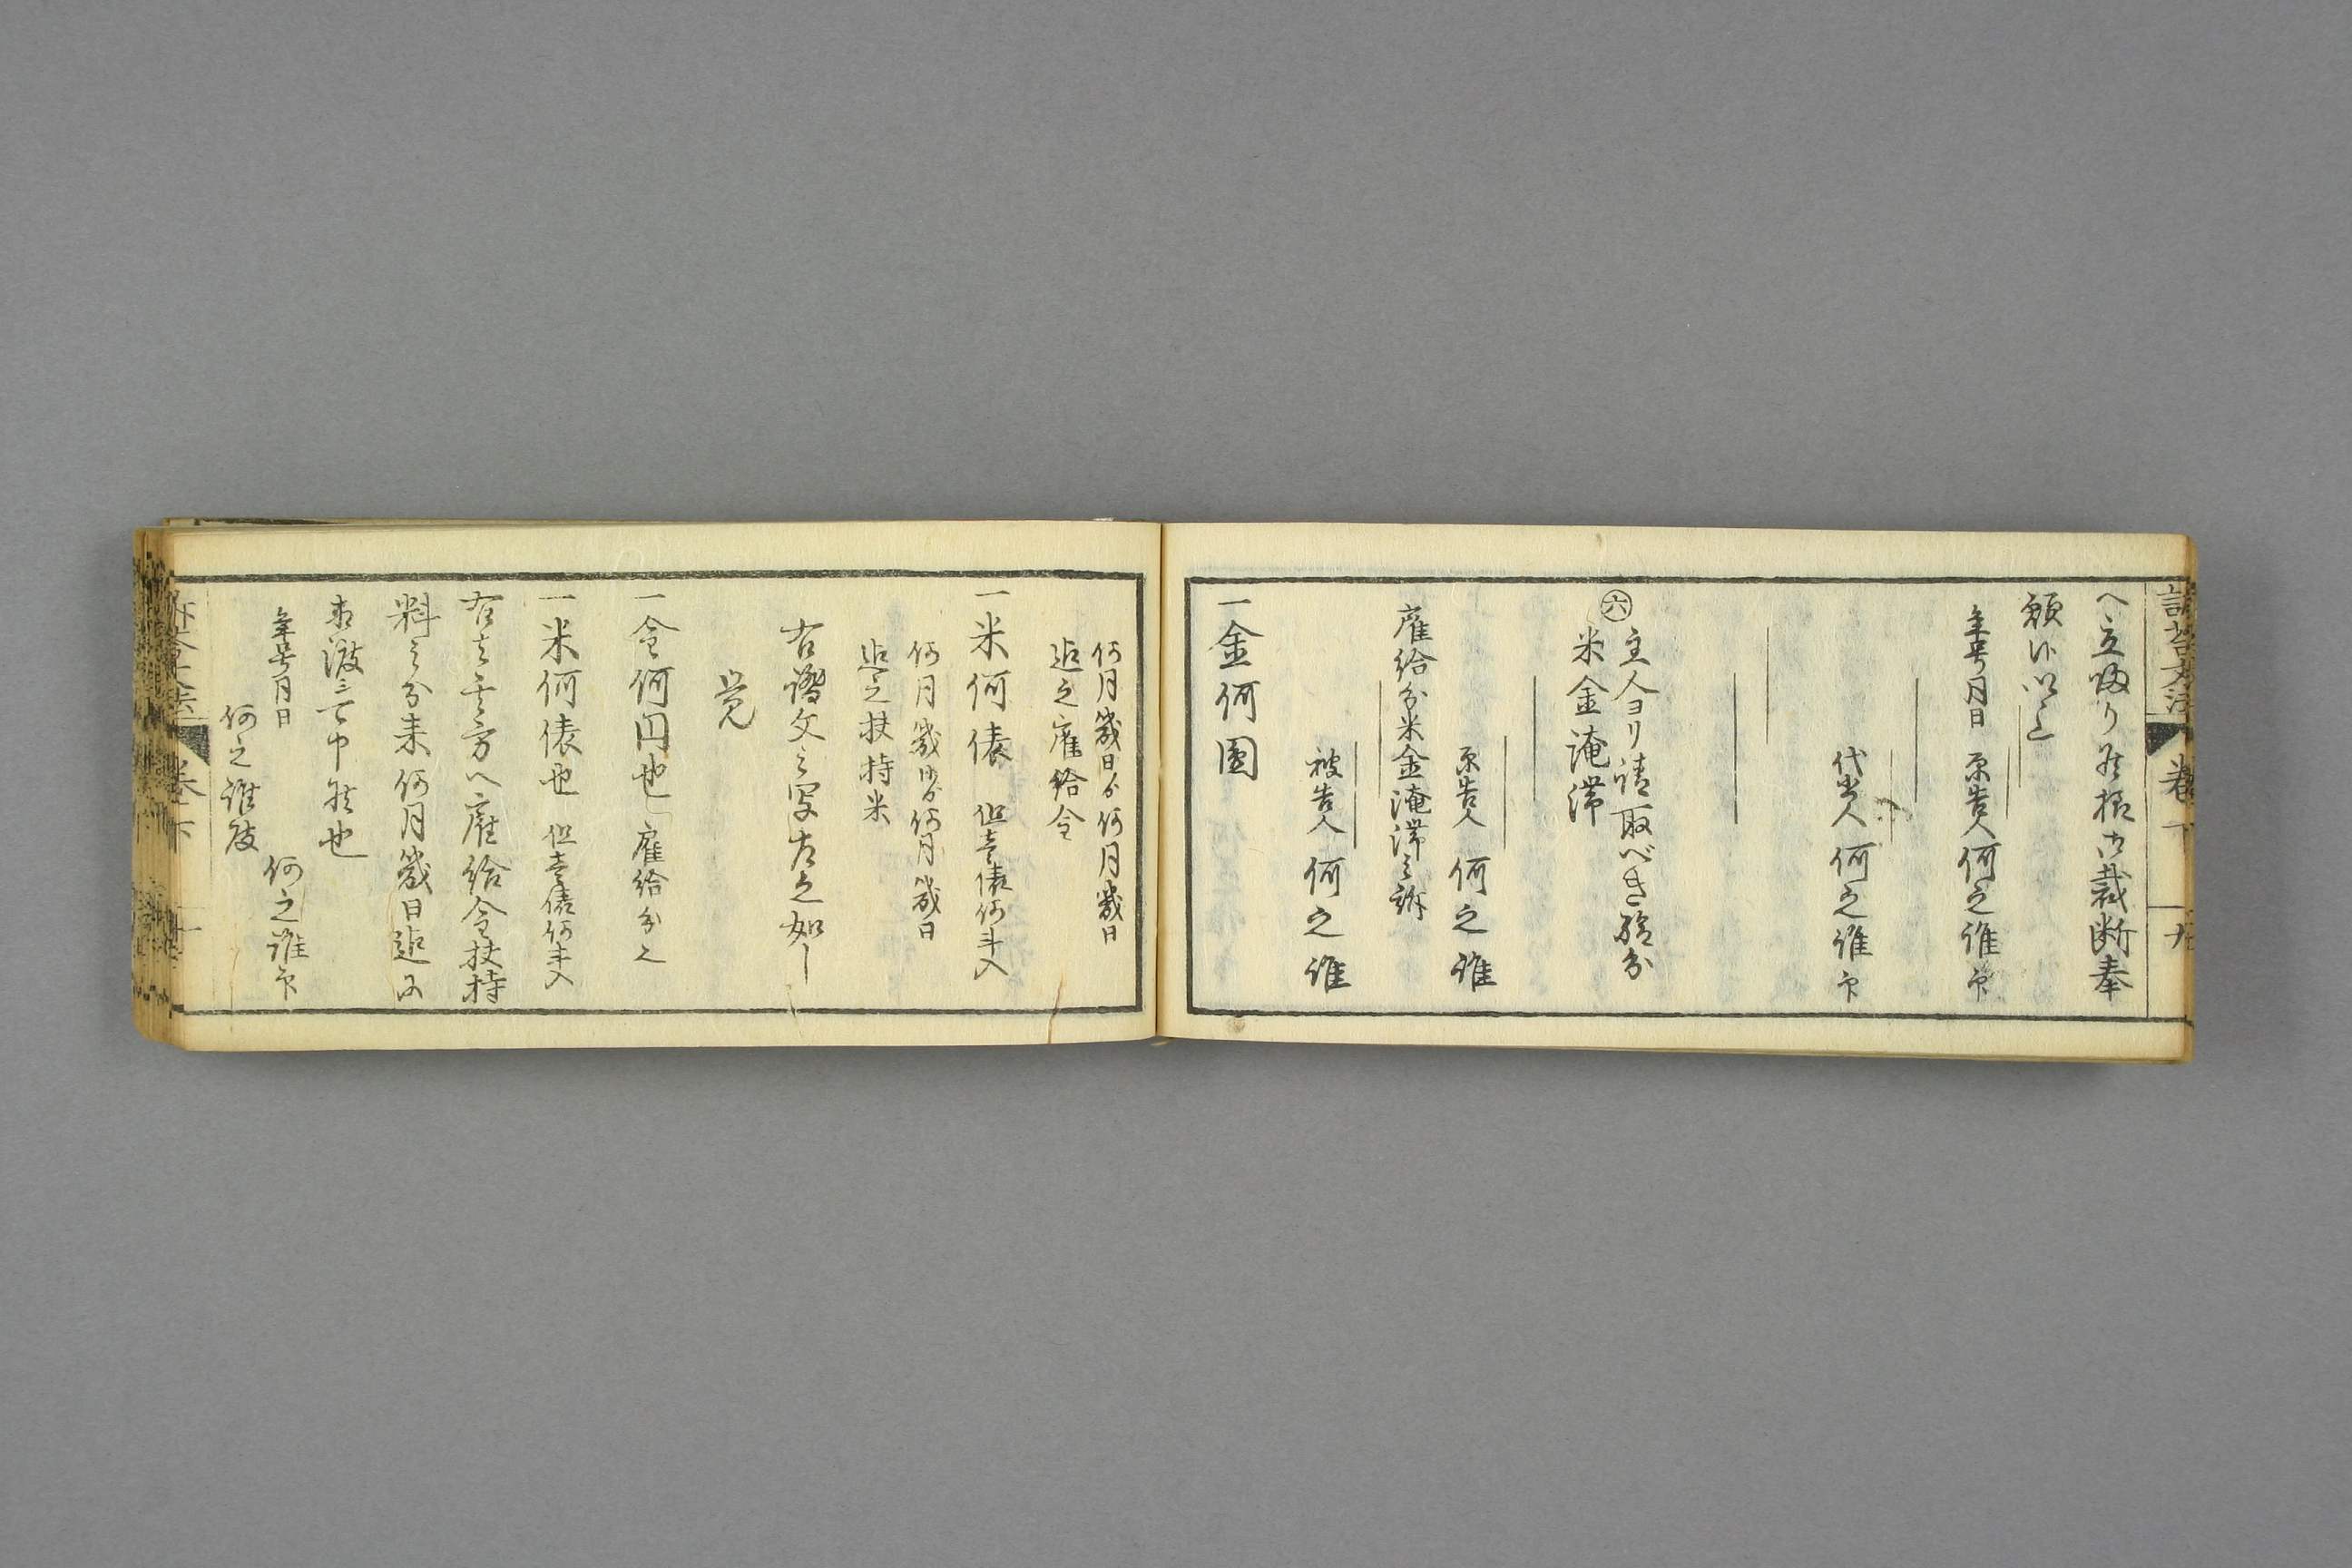 訴答文法 巻下 九
へ立戻り候様御裁断奉
願候以上
年号月日 原告人 何之誰印
代書人 何之誰印
六 主人ヨリ請取べき給分
米金淹滞
原告人 何之誰
雇給分米金淹滞之訴
被告人 何之誰
一金何圓
何月幾日ゟ何月幾日
迄之雇給金
一米何俵 但壱俵何斗入
何月幾日ゟ何月幾日
迄之扶持米
右證文之写左之如し
覚
一金何円也 雇給分也
一米何俵也 但壱俵何斗入
右者其方へ雇給金扶持
料之分来何月幾日迄ニ
相渡可申候也
年号月日 何之誰印
何之誰殿
訴答文法 巻下